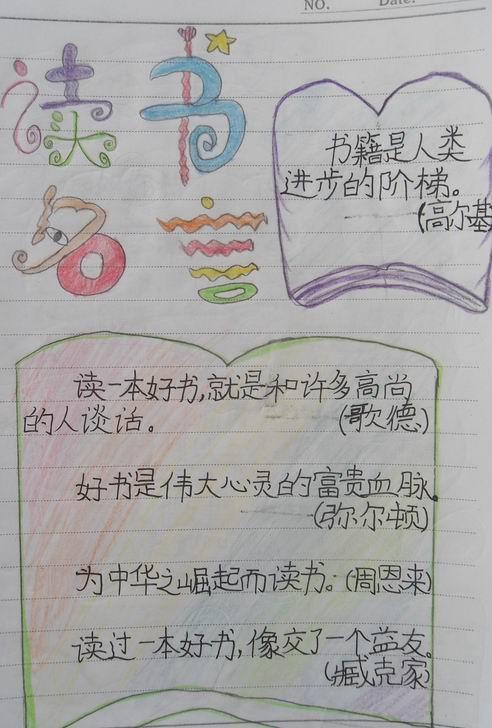 NO.
Date:
读书
名言
书籍是人类
进步的阶梯。
(高尔基
读一本好书,就是和许多高尚
的人谈话。
(歌德)
好书是伟大心灵的富贵血脉。
(弥尔顿)
为中华之崛起而读书。(周恩来)
读过一本好书,像交了一个益友。
(臧克家)